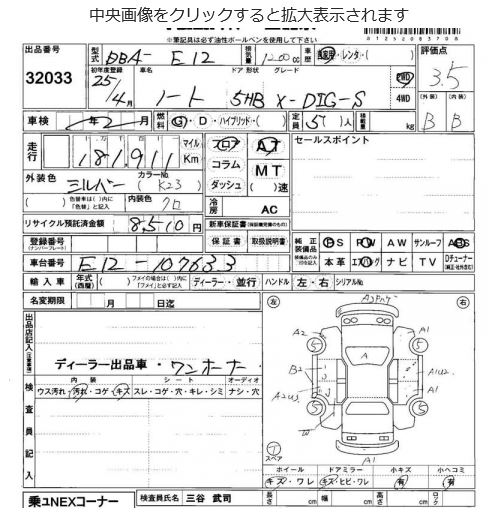 中央画像をクリックすると拡大表示されます
※筆記具は必ず油性ボールペンを使用して下さい
出品番号 32033
型式 DBA- E12 排気量 1200 cc 車歴 自家用・レンタ・( ) 評価点 3.5
初年度登録 25/4月 車名 ノート ドア 形状 5HB グレード X-DIG-S 2WD 4WD (外装) B (内装) B
車検 年 2月 燃料 G・D・ハイブリッド・( ) 定員 5( )人 積載量 kg
走行 181,911 マイル Km フロア コラム ダッシュ AT MT ( )速 セールスポイント
外装色 シルバー カラーNo. (K23)
(色替車は( )内に"色替"と記入) 内装色 クロ 冷房 AC
リサイクル預託済金額 8,510円 新車保証書(保証継承のもの)
登録番号(ナンバープレート) 保証書 取扱説明書 純正装備品 PS PW AW サンルーフ ABS
車台番号 E12-107633 装備品のみ○印を記入 本革 エアバッグ ナビ TV Dチューナー(純正・社外含む)
輸入車 年式(西暦) (ファイの場合は( )内に「ファイ」と必ず記入) ディーラー・並行 ハンドル 左・右 シリアルNo.
名変期限 月 日迄
左 右
出品店記入(注意事項) ディーラー出品車・ワンオーナー
A2 A1 A B2 A1U2 A2U3 A1 W A1
5 5 5 5
検査員記入 内装 シート オーディオ
ウス汚れ・汚れ・コゲ・キズ スレ・コゲ・穴・キレ・シミ ナシ・穴
T スペア
ホイール ドアミラー 小キズ 小ヘコミ
キズ・ワレ キズ・ヒビ・ワレ 有 有
乗ユNEXコーナー 検査員氏名 三谷 武司 長さ cm 幅 cm 高さ cm ロック